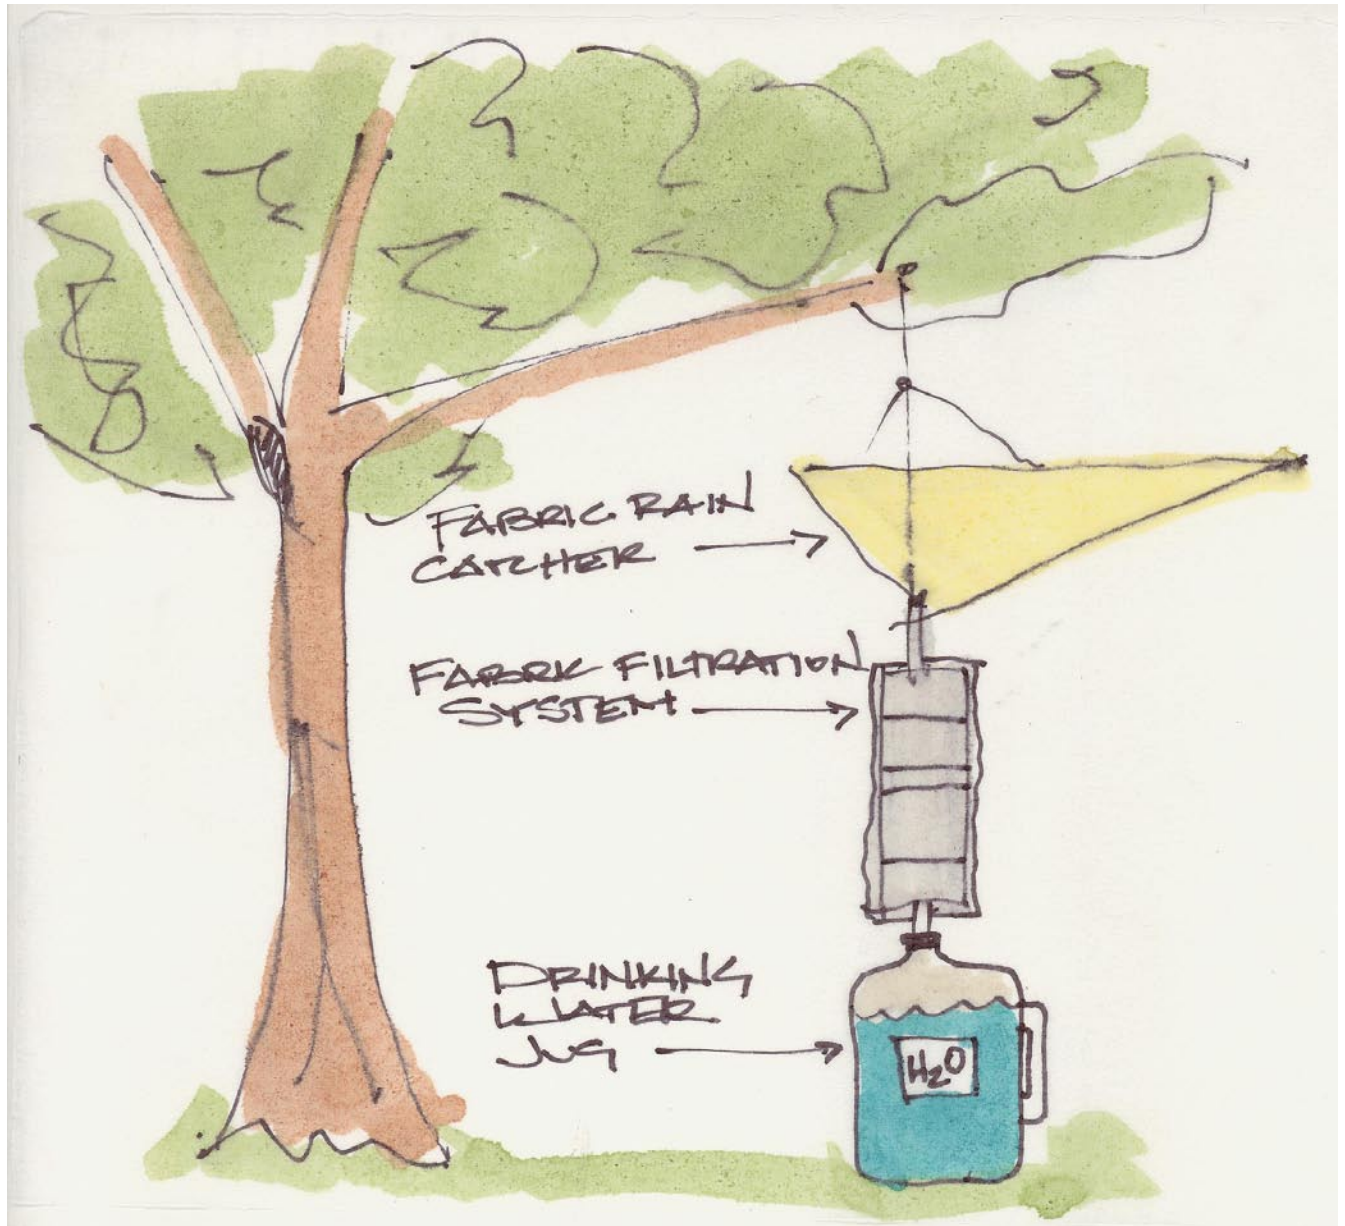 FABRIC RAIN
CATCHER
FABRIC FILTRATION
SYSTEM
DRINKING
WATER
JUG
H₂O